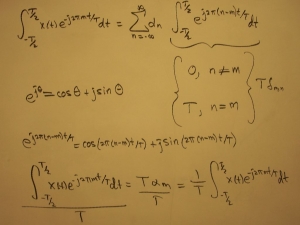 ∫_{-T/2}^{T/2} x(t) e^{-j2πmt/T} dt = Σ_{n=-∞}^{∞} α_n ∫_{-T/2}^{T/2} e^{j2π(n-m)t/T} dt
e^{jθ} = cosθ + j sinθ
{ 0, n≠m
T, n=m } Tδ_{mn}
e^{j2π(n-m)t/T} = cos(2π(n-m)t/T) + j sin(2π(n-m)t/T)
∫_{-T/2}^{T/2} x(t) e^{-j2πmt/T} dt / T = Tα_m / T = 1/T ∫_{-T/2}^{T/2} x(t) e^{-j2πmt/T} dt